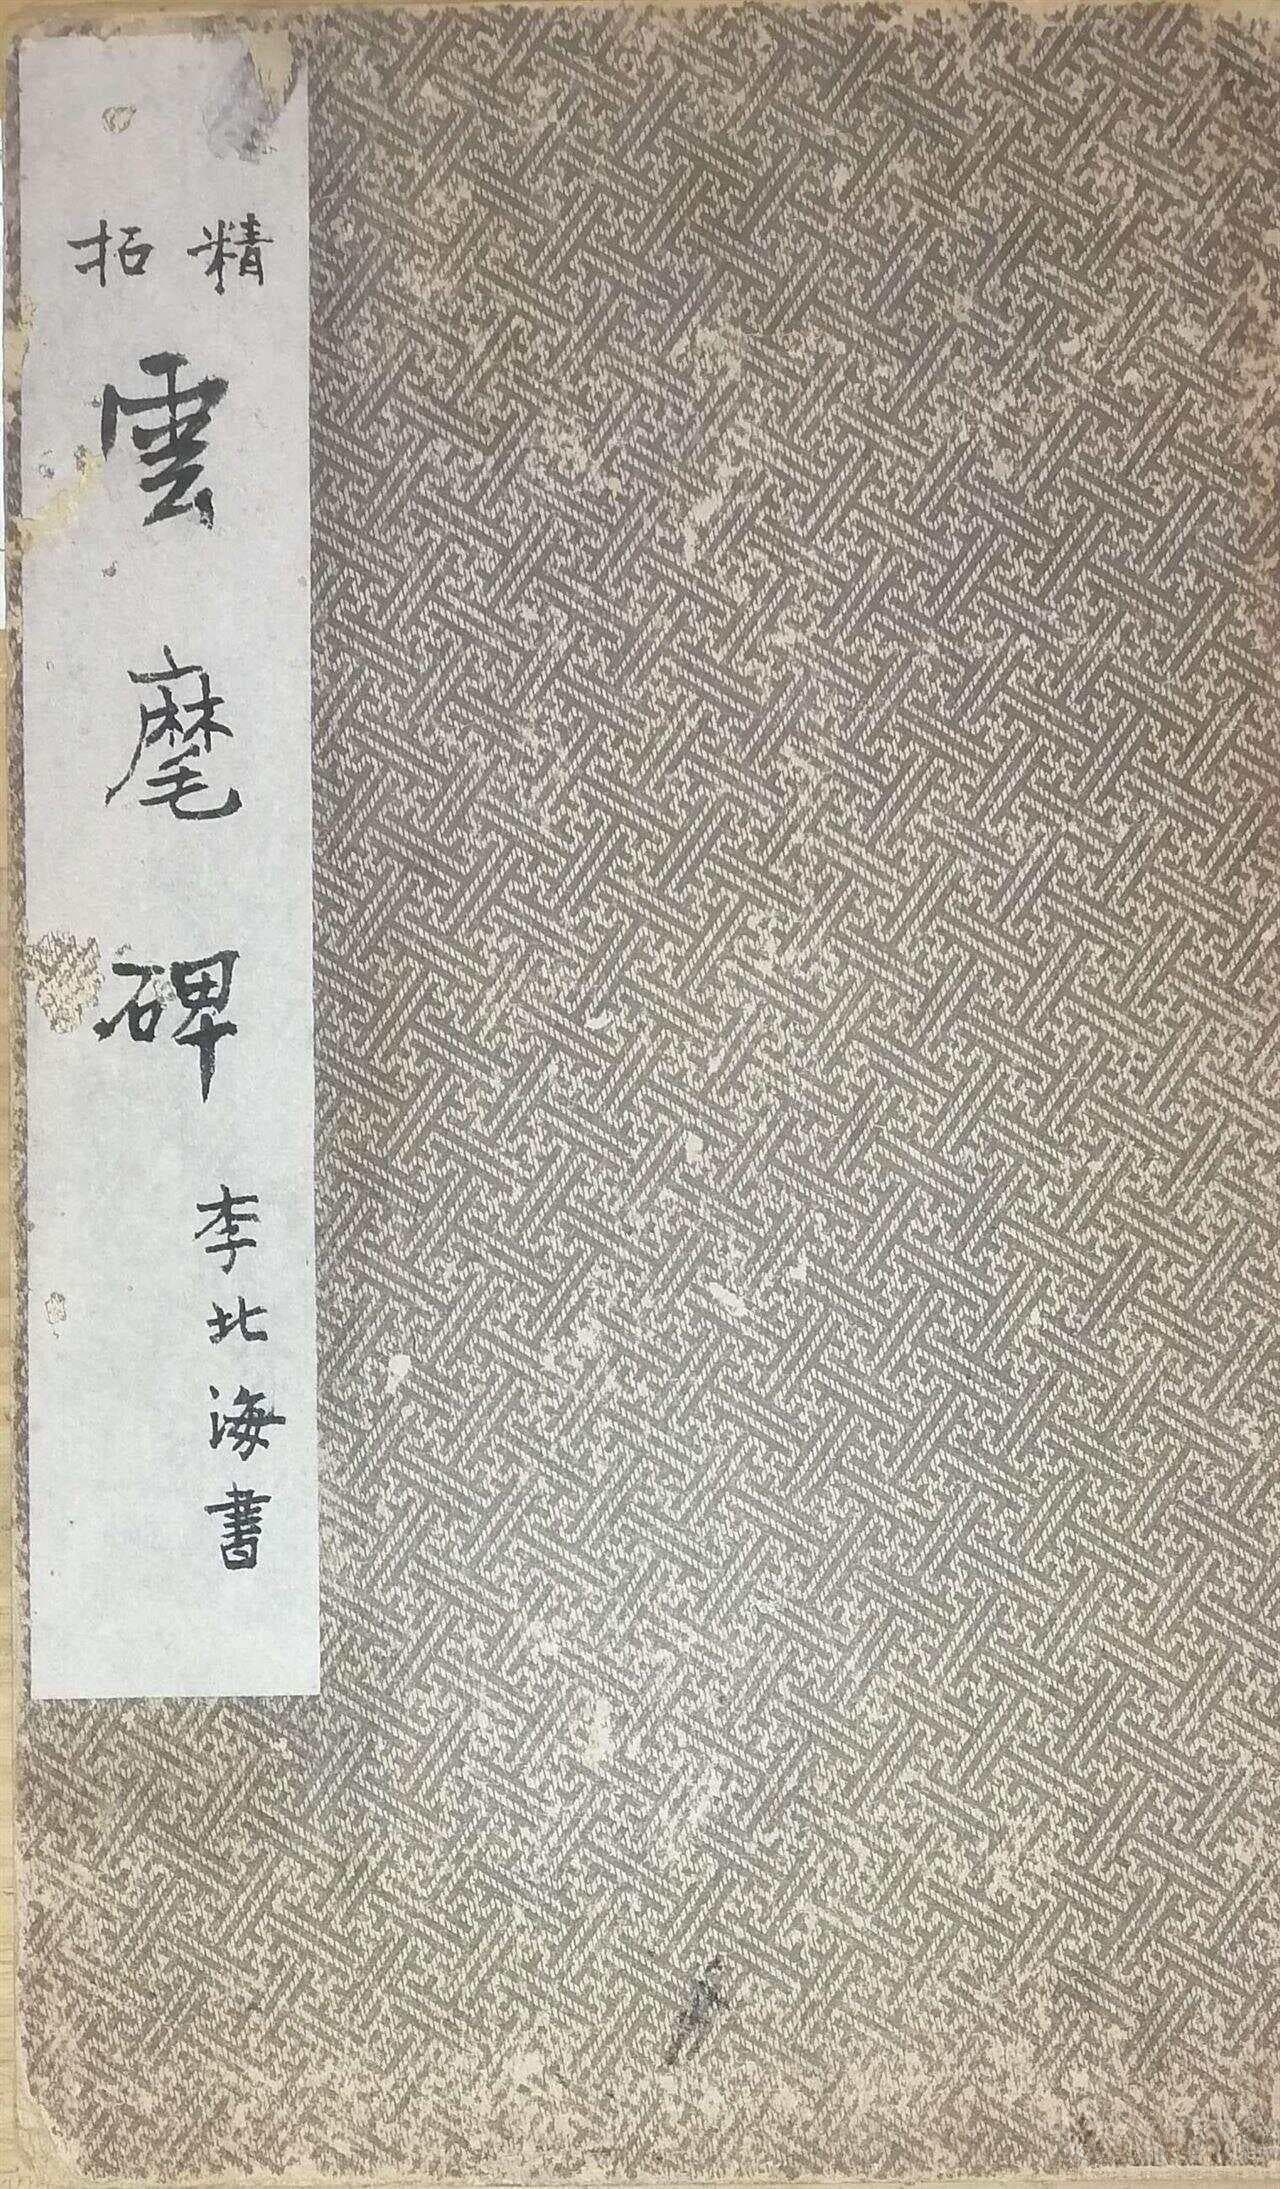 精拓
雲麾碑
李北海書